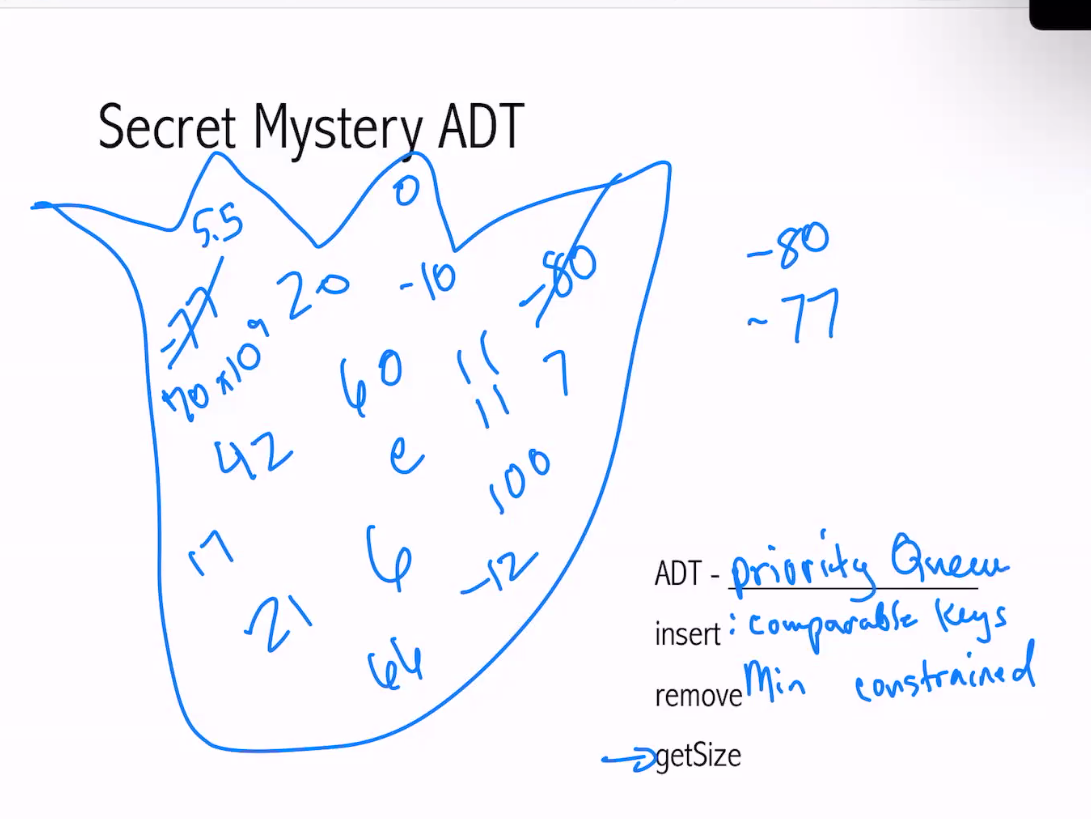 Secret Mystery ADT
0
5.5
-80
20 -10 -80
-77
-77
70 x 10⁹ 60 11 7
11
42 e
100
17 6 -12
ADT - priority Queue
21
insert : comparable keys
64
removeMin constrained
→getSize